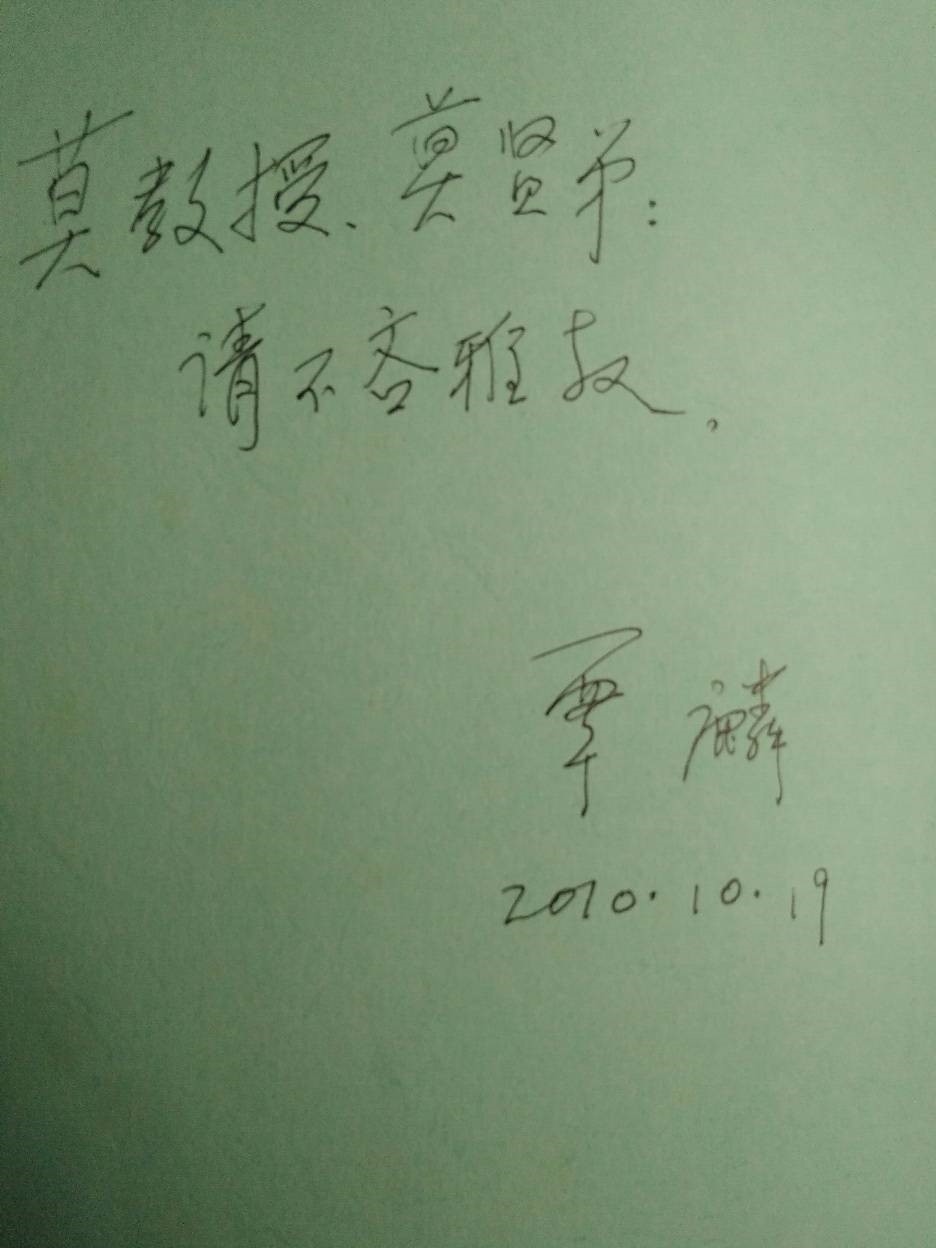 莫教授、莫贤弟：
请不吝雅教。
覃麟
2010.10.19